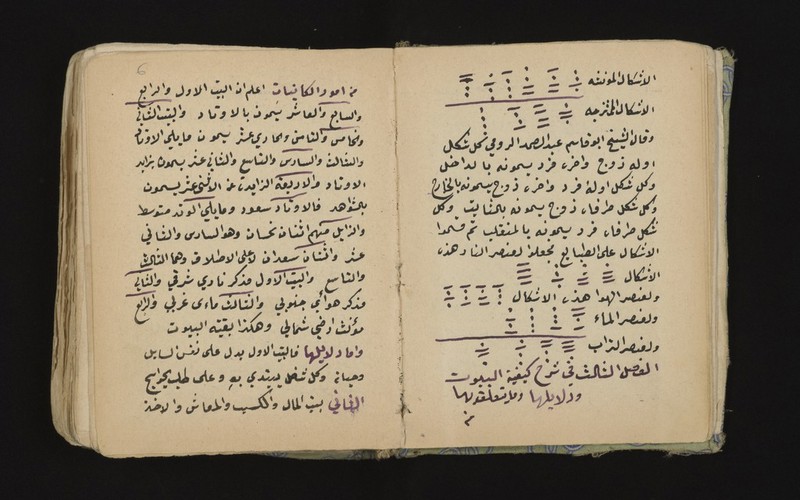 الاشكال المؤنثه
الاشكال الممتزجه
وقال الشيخ ابو قاسم عبد الصمد الرومي كل شكل
اوله زوج واخره فرد يسمونه بالداخل
وكل شكل اوله فرد واخره زوج يسمونه بالخارج
وكل شكل طرفاه زوج يسمونه بالثابت وكل
شكل طرفاه فرد يسمونه بالمنقلب ثم قسموا
الاشكال على الطبايع فجعلوا لعنصر النار هذه
الاشكال
ولعنصر الهوا هذه الاشكال
ولعنصر الماء
ولعنصر التراب
الفصل الثالث في شرح كيفية البيوت
ودلايلها وما يتعلقو بها
6
من امور الكاينات اعلم ان البيت الاول والرابع
والسابع والعاشر يسمون بالاوتاد والبيت الثاني
والخامس والثامن والحادي عشر يسمون مايلي الاوتاد
والثالث والسادس والتاسع والثاني عشر يسمون بزايد
الاوتاد والاربعة الزايدة عن الاثنى عشر يسمون
بالشواهد فالاوتاد سعود ومايلي الوتد متوسط
والزايل منهم اثنان نحسان وهو السادس والثاني
عشر واثنان سعدان لاعلى الاطلاق وهما الثالث
والتاسع والبيت الاول مذكر ناري شرقي والثاني
مذكر هوائي جنوبي والثالث مائى غربي والرابع
مؤنث ارضي شمالي وهكذا بقية البيوت
واما دلايلها فالبيت الاول يدل على نفس السايل
وحياته وكل شغل يبتدي به وعلى طلب
الثاني بيت المال والكسب والمعاش والاخذ